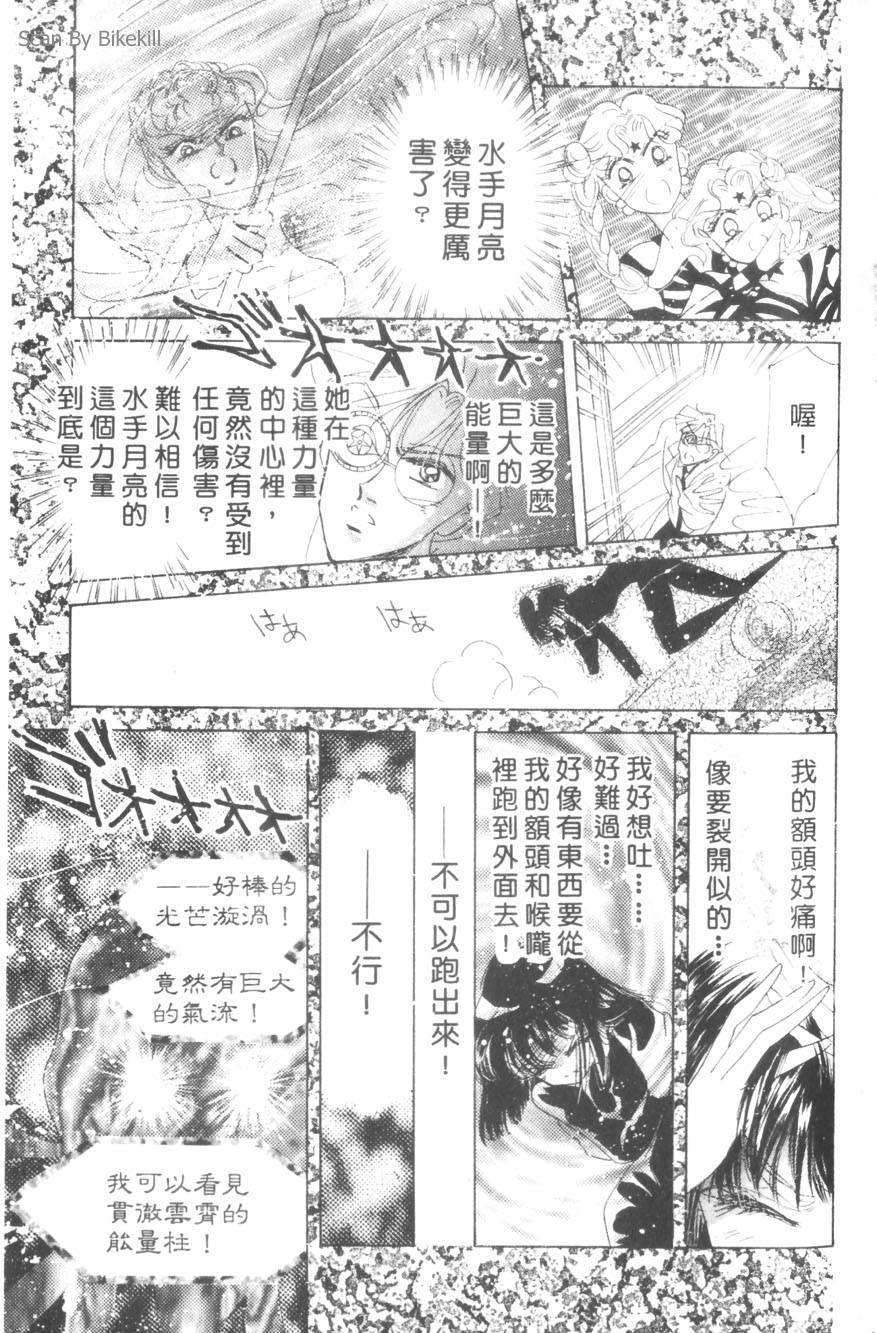 Scan By Bikekill
水手月亮
變得更厲
害了？
喔！
這是多麼
巨大的
能量啊——！
她在
這種力量
的中心裡，
竟然沒有受到
任何傷害？
難以相信！
水手月亮的
這個力量
到底是？
はぁ
はぁ
我的額頭好痛啊！
像要裂開似的…
我好想吐……
好難過…
好像有東西要從
我的額頭和喉嚨
裡跑到外面去！
——不可以跑出來！
——不行！
——好棒的
光芒漩渦！
竟然有巨大
的氣流！
我可以看見
貫徹雲霄的
能量柱！